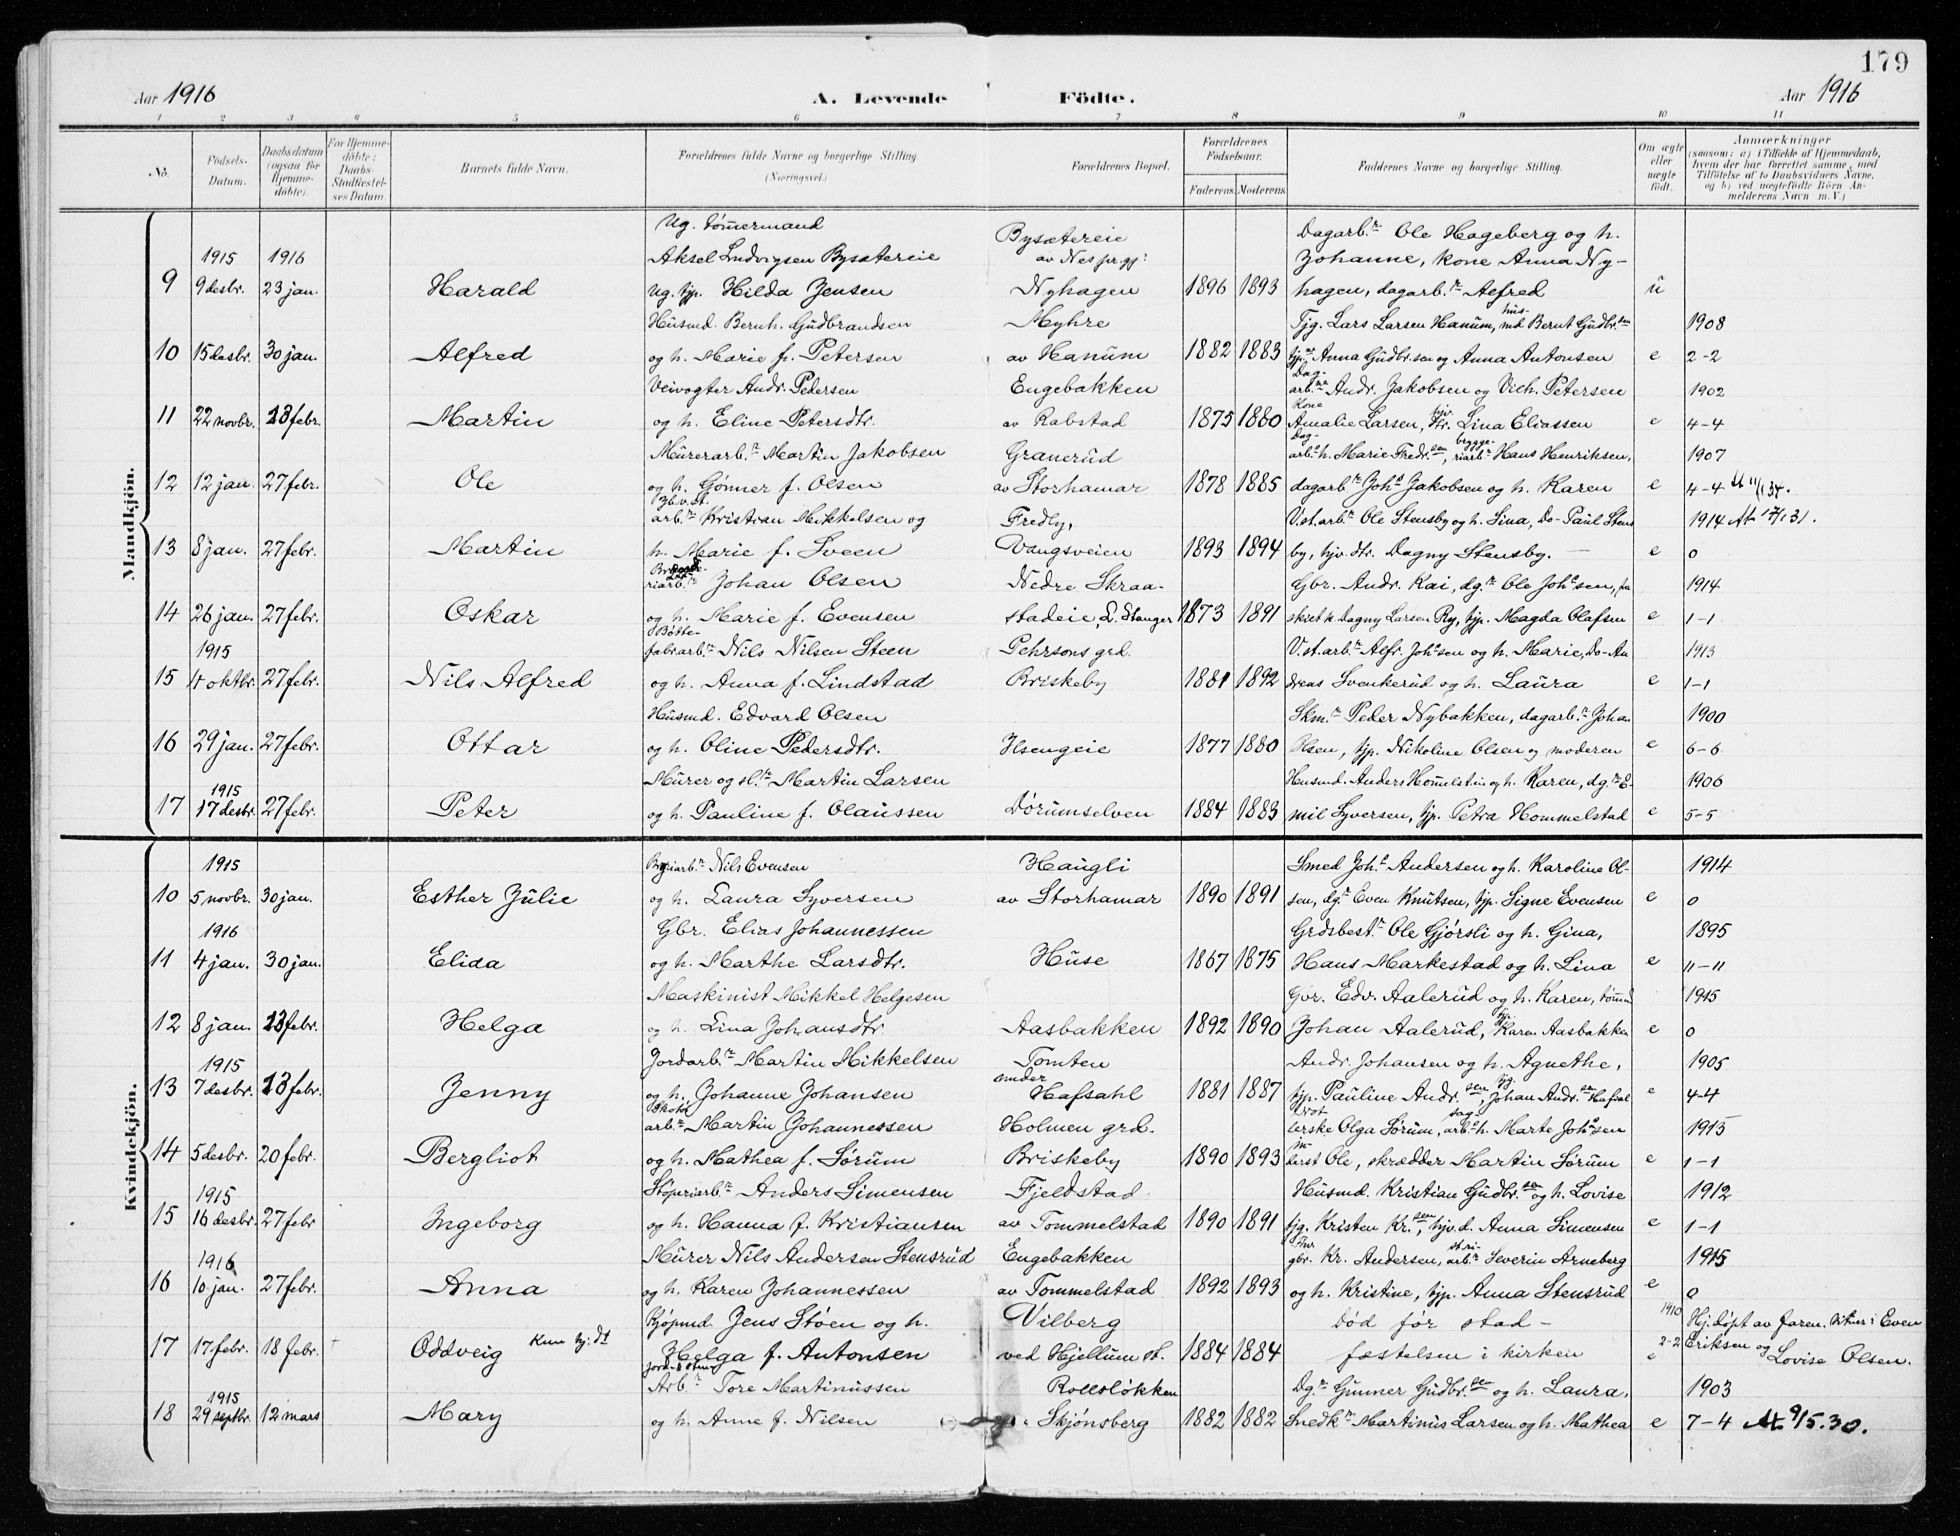 179
Aar 1916 A. Levende Födte. Aar 1916
1 2 3 4 5 6 7 8 9 10 11
No. Födsels-Datum. Daabsdatum (ogsaa for Hjemme-döbte). For Hjemme-döbte: Daabs-Stadfæstel-ses Datum. Barnets fulde Navn. Forældrenes fulde Navne og borgerlige Stilling (Næringsvei.) Forældrenes Bopæl. Forældrenes Födselsaar. Faderens. Moderens. Faddernes Navne og borgerlige Stilling. Om ægte eller uægte födt. Anmærkninger (saasom: a) i Tilfælde af Hjemmedaab, hvem der har forrettet samme, med Tilföielse af to Daabsvidners Navne, og b) ved uægtefödte Börn Anmelderens Navn m. V.)
Mandkjön.
Ug. tømermand Bysætereie Dagarb.r Ole Hageberg og h.
1915 1916 Aksel Ludvigsen Bysætereie av Nes pr.gj: Johanne, kone Anna Ny-
9 9 desbr. 23 jan. Harald ug. tjp. Hilda Jensen Nyhagen 1896 1893 hagen, dagarb.r Alfred u
Husmd. Bernh. Gudbrandsen Myhre Tjg. Lars Larsen Hanum, husmd. Bernt Gudbr.sen 1908
10 15 desbr. 30 jan. Alfred og h. Marie f. Petersen av Hanum 1882 1883 tjp.er Anna Gudbr.sen og Anna Antonsen e 2-2
Veivogter Andr. Pedersen Engebakken Dagarb.ne Andr. Jakobsen og Vilh. Petersen 1902
11 22 novbr. 13 febr. Martin og h. Eline Petersdtr. av Rabstad 1875 1880 kone Amalie Larsen, hjv. dtr. Lina Eliassen e 4-4
Murerarb.r Martin Jakobsen Granerud Dagarb.h. Marie Fredr.sen, bryggeriarb.r Hans Henriksen, 1907
12 12 jan. 27 febr. Ole og h. Gønner f. Olsen av Storhamar 1878 1885 dagarb.r Joh.s Jakobsen og h. Karen e 4-4 At 11/1 34.
arb.r Kristian Mikkelsen og Fredly, V.st.arb.r Ole Stensby og h. Lina, Do- Paul Stens 1914
13 8 jan. 27 febr. Martin h. Marie f. Sveen Vangsveien 1893 1894 by, hjv. dtr. Dagny Stensby. e 0
riarb.r Johan Olsen Nedre Skraa- Gbr. Andr. Kai, dg.r Ole Joh.sen, 1914
14 26 jan. 27 febr. Oskar og h. Marie f. Evensen stadeie, L. Stanger 1873 1891 Dagny Larsen Ry, tjp. Magda Olafsen e 1-1
1915 fabrarb.r Nils Nilsen Steen Pehrsons grd. V.st.arb.r Alfr. Joh.sen og h. Marie, Do- An 1913
15 4 oktbr. 27 febr. Nils Alfred og h. Anna f. Lindstad Briskeby 1881 1892 dreas Svenkerud og h. Laura e 1-1
Husmd. Edvard Olsen Skm.r Peder Nybakken, dagarb.r Johan 1900
16 29 jan. 27 febr. Ottar og h. Oline Pedersdtr. Ilsengeie 1877 1880 Olsen, tjp. Nikoline Olsen og moderen e 6-6
1915 Murer og sl.r Martin Larsen Husmd. Anders Hommelstin og h. Karen, dg.r E- 1906
17 17 desbr. 27 febr. Peter og h. Pauline f. Olaussen Dørumselven 1884 1883 mil Syversen, tjp. Petra Hommelstad e 5-5
Kvindekjön.
1915 Nils Evensen Haugli Smed Joh.s Andersen og h. Karoline Ol- 1914
10 5 novbr. 30 jan. Esther Julie og h. Laura Syversen av Storhamar 1890 1891 sen, dg.r Even Knutsen, tjp. Signe Evensen e 0
1916 Gbr. Elias Johannessen Grdsbest.r Ole Gjørsli og h. Gina, 1895
11 4 jan. 30 jan. Elida og h. Marthe Larsdtr. Huse 1867 1875 Hans Markestad og h. Lina e 11-11
Maskinist Mikkel Helgesen Gvr. Edv. Aalerud og h. Karen, tømmd 1915
12 8 jan. 13 febr. Helga og h. Lina Johansdtr Aasbakken 1892 1890 Johan Aalerud, Karen Aasbakken e 0
1915 Jordarb.r Martin Mikkelsen Tomten Andr. Johansen og h. Agnethe, 1905
13 7 desbr. 13 febr. Jenny og h. Johanne Johansen under Hafsahl 1881 1887 tjp. Pauline Andr.sen, tjg. Johan Andr.sen Hafsal e 4-4
Skotøiarb.r Martin Johannessen Holmen grd. terske Olga Sørum, sagarb.h. Marte Joh.sen 1915
14 5 desbr. 20 febr. Bergliot og h. Mathea f. Sørum Briskeby 1890 1893 Ole, skrædder Martin Sørum e 1-1
1915 Støperiarb.r Anders Simensen Fjeldstad Husmd. Kristian Gudbr.sen og h. Lovise 1912
15 16 desbr. 27 febr Ingeborg og h. Hanna f. Kristiansen av Tommelstad 1890 1891 tjg. Kristen Kr.sen, hjv. d. Anna Simensen e 1-1
1916 Murer Nils Andersen Stensrud Engebakken gbr. Kr. Andersen, arb.r Severin Arneberg 1915
16 10 jan. 27 febr. Anna og h. Karen Johannessen av Tommelstad 1892 1893 og h. Kristine, tjp. Anna Stensrud e 0
Kjøpmd. Jens Støen og h. Vilberg Død før stad- 1910 Hj. døpt av faren. Vitner: Even
17 17. febr. 18 febr. Oddveig Kun hj. dt Helga f. Antonsen ved Hjellum st. 1884 1884 fæstelsen i kirken 2-2 e Eriksen og Lovise Olsen.
1915 Arb.r Tore Martinussen Rollsløkken Dg.r Gunner Gudbr.sen og h. Laura. 1903
18 29 septbr. 12 mars Mary og h. Anne f. Nilsen Skjønsberg 1882 1882 Snedk.r Martinus Larsen og h. Mathea e 7-4 At. 9/5.30.